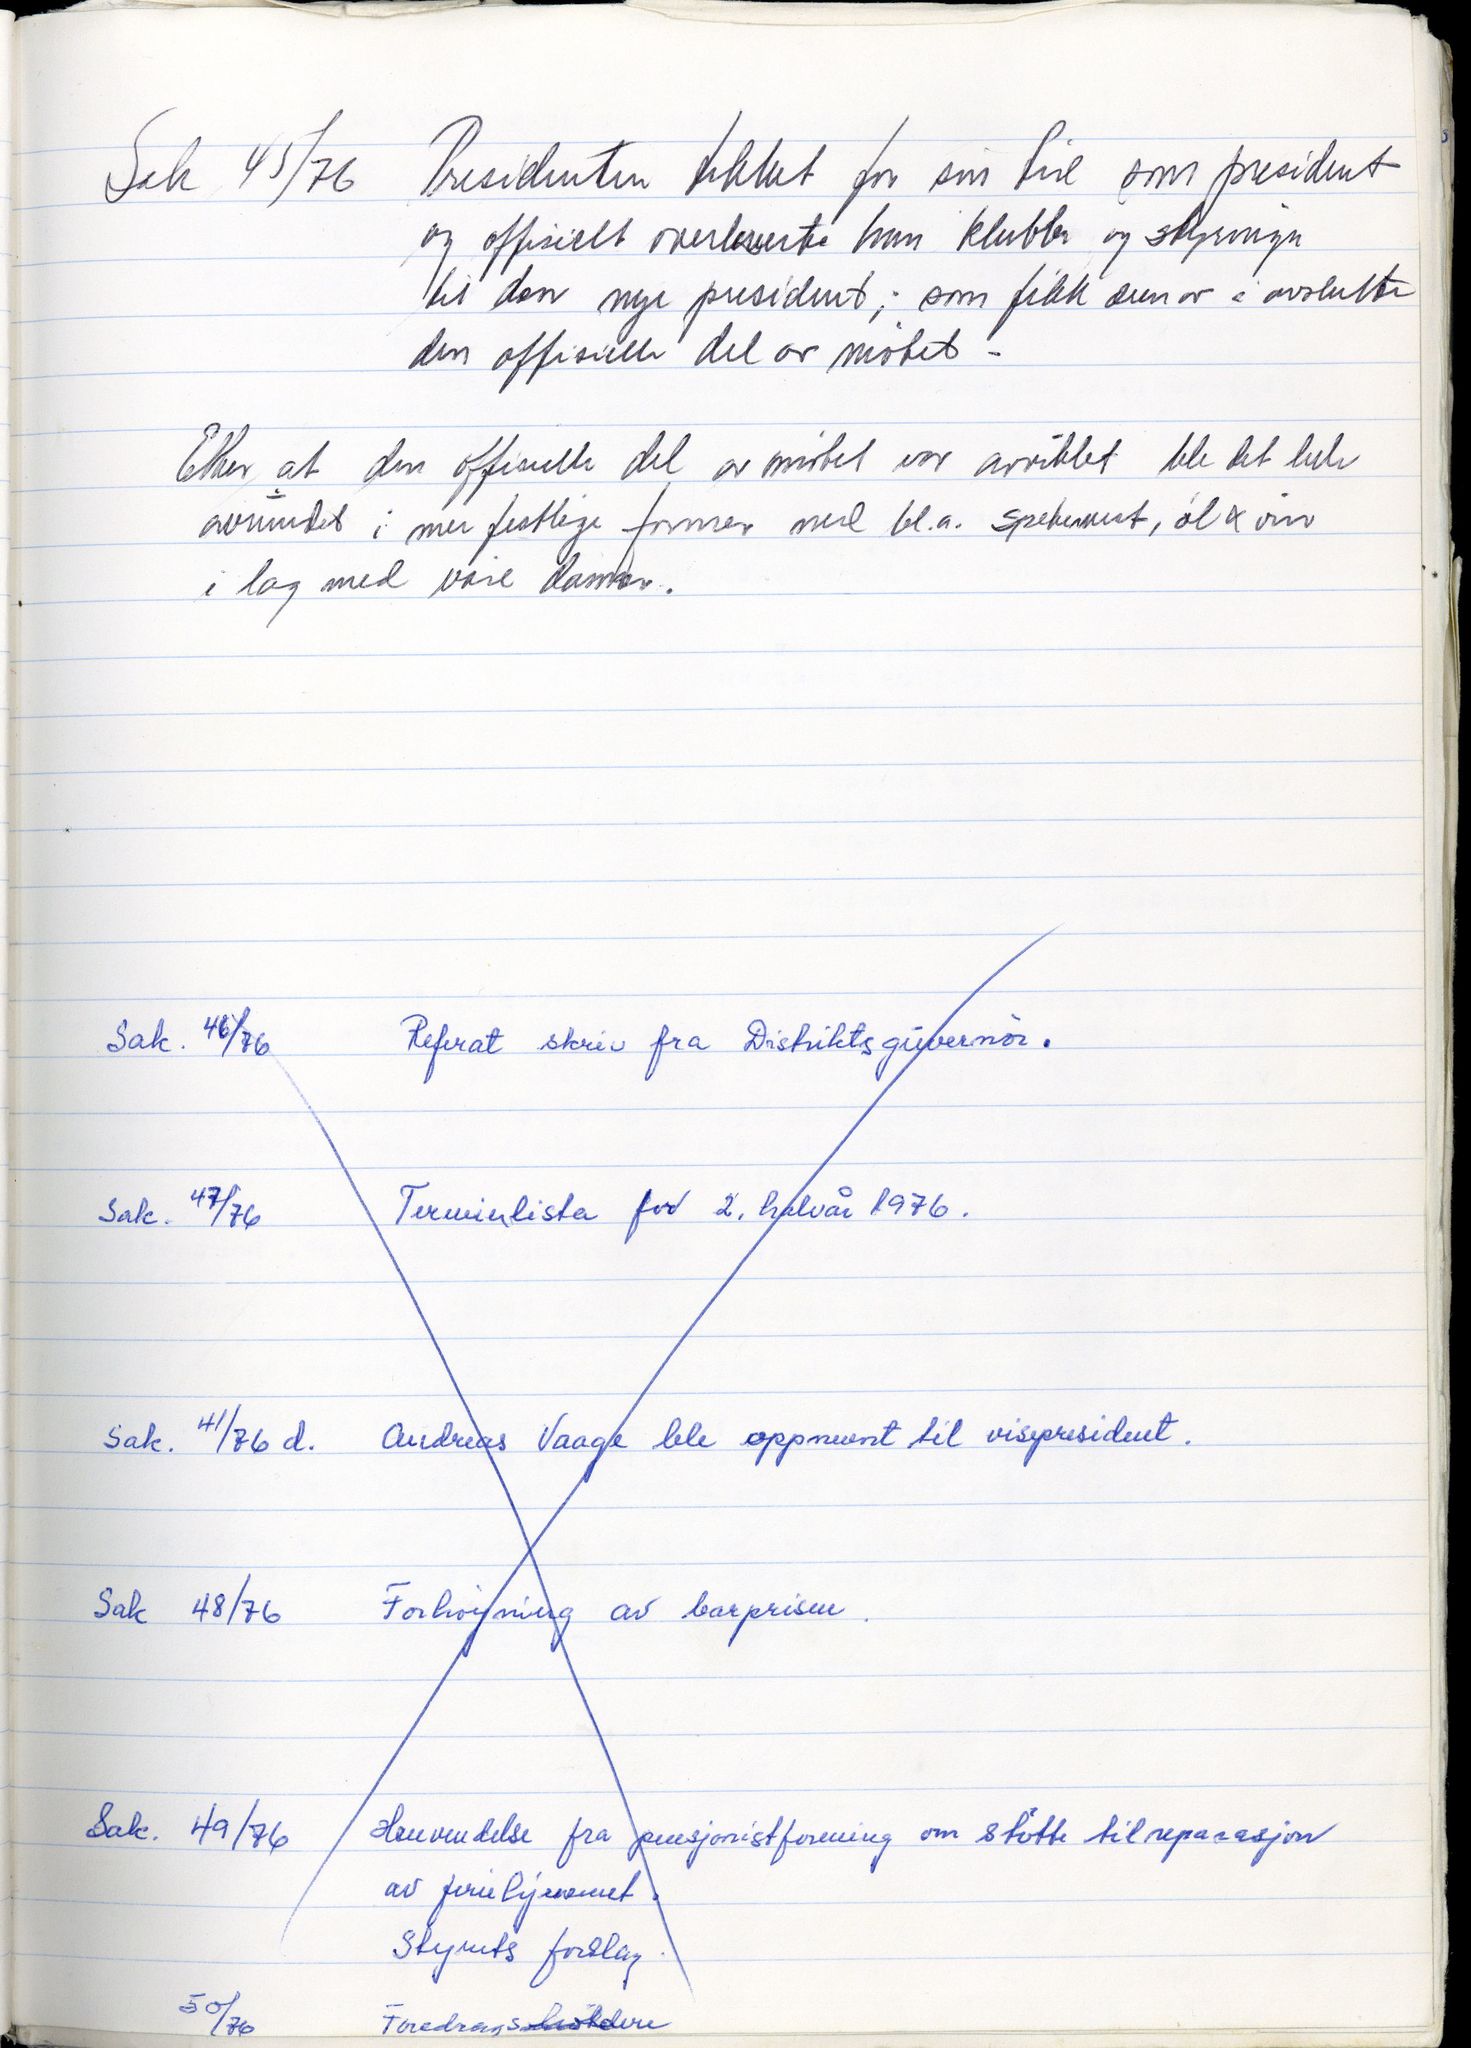 Sak 45/76 Presidenten takket for sin tid som president
og offisielt overleverte han klubba og styringa
til den nye president; som fikk æren av å avslutte
den offisielle del av møtet -
Etter at den offisielle del av møtet var avviklet ble det hele
avrundet i mer festlige former med bl.a. spekemat, øl & vin
i lag med våre damer.
Sak. 46/76 Referat skriv fra Distriktsguvernör.
Sak. 47/76 Terminlista for 2. halvår 1976.
Sak. 41/76 d. Andreas Vaage ble oppnevnt til visepresident.
Sak 48/76 Forhöyning av barprisen.
Sak. 49/76 Henvendelse fra pensjonistforening om støtte til reparasjon
av feriehjemmet.
Styrets forslag.
50/76 Foredragsholdere